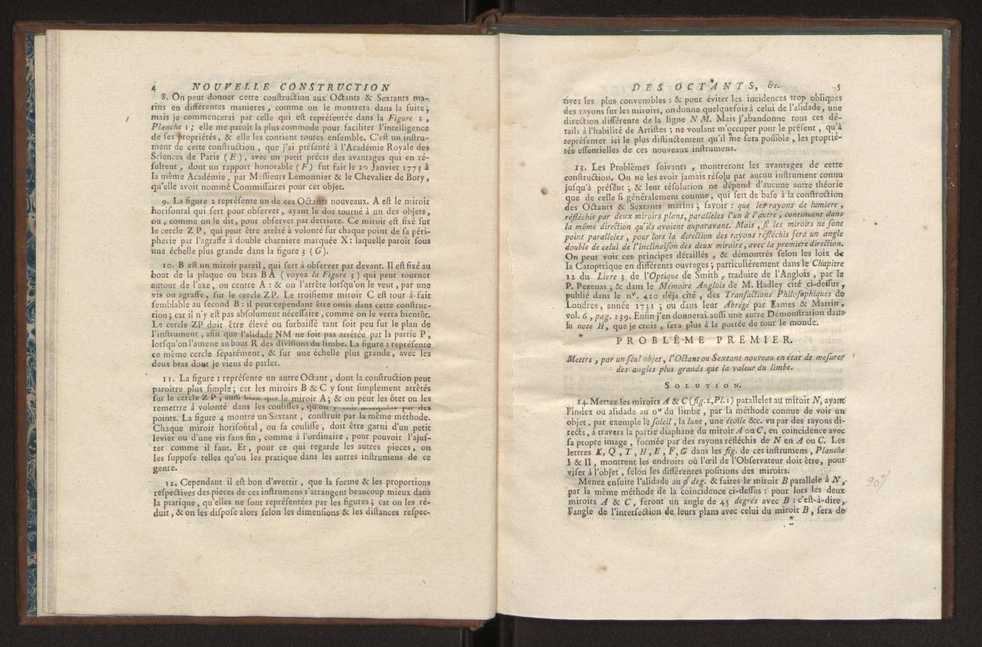 4 NOUVELLE CONSTRUCTION
8. On peut donner cette construction aux Octants & Sextants ma-
rins en différentes manieres, comme on le montrera dans la suite;
mais je commencerai par celle qui est représentée dans la Figure 2,
Planche 1; elle me paroît la plus commode pour faciliter l'intelligence
de ses propriétés, & elle les contient toutes ensemble. C'est un instru-
ment de cette construction, que j'ai présenté à l'Académie Royale des
Sciences de Paris (E), avec un petit précis des avantages qui en ré-
sultent, dont un rapport honorable (F) fut fait le 20 Janvier 1775 à
la même Académie, par Messieurs Lemonnier & le Chevalier de Bory,
qu'elle avoit nommé Commissaires pour cet objet.
9. La figure 2 représente un de ces Octants nouveaux. A est le miroir
horisontal qui sert pour observer, ayant le dos tourné à un des objets,
ou, comme on le dit, pour observer par derriere. Ce miroir est fixé sur
le cercle ZP, qui peut être arrêté à volonté sur chaque point de sa péri-
pherie par l'agraffe à double charniere marquée X: laquelle paroît sous
une échelle plus grande dans la figure 3 (G).
10. B est un miroir pareil, qui sert à observer par devant. Il est fixé au
bout de la plaque ou bras BA (voyez la Figure 3) qui peut tourner
autour de l'axe, ou centre A: & on l'arrête lorsqu'on le veut, par une
vis ou agraffe, sur le cercle ZP. Le troisieme miroir C est tout-à-fait
semblable au second B: il peut cependant être omis dans cette construc-
tion; car il n'y est pas absolument nécessaire, comme on le verra bientôt.
Le cercle ZP doit être élevé ou surbaissé tant soit peu sur le plan de
l'instrument, afin que l'alidade NM ne soit pas arrêtée par la partie P,
lorsqu'on l'amene au bout R des divisions du limbe. La figure 3 représente
ce même cercle séparément, & sur une échelle plus grande, avec les
deux bras dont je viens de parler.
11. La figure 1 représente un autre Octant, dont la construction peut
paroître plus simple; car les miroirs B & C y sont simplement arrêtés
sur le cercle ZP, aussi bien que le miroir A; & on peut les ôter ou les
remettre à volonté dans les coulisses, qu'on y voit marquées par des
points. La figure 4 montre un Sextant, construit par la même méthode.
Chaque miroir horisontal, ou sa coulisse, doit être garni d'un petit
levier ou d'une vis sans fin, comme à l'ordinaire, pour pouvoir l'ajus-
ter comme il faut. Et, pour ce qui regarde les autres pieces, on
les suppose telles qu'on les pratique dans les autres instrumens de ce
genre.
12. Cependant il est bon d'avertir, que la forme & les proportions
respectives des pieces de ces instrumens s'arrangent beaucoup mieux dans
la pratique, qu'elles ne sont représentées par les figures; car on les ré-
duit, & on les dispose alors selon les dimensions & les distances respec-
DES OCTANTS, &c. 5
tives les plus convenables: & pour éviter les incidences trop obliques
des rayons sur les miroirs, on donne quelquefois à celui de l'alidade, une
direction différente de la ligne NM. Mais j'abandonne tous ces dé-
tails à l'habilité de Artistes; ne voulant m'occuper pour le présent, qu'à
représenter ici le plus distinctement qu'il me sera possible, les proprié-
tés essentielles de ces nouveaux instrumens.
13. Les Problêmes suivants, montreront les avantages de cette
construction. On ne les avoit jamais résolu par aucun instrument connu
jusqu'à présent; & leur résolution ne dépend d'aucune autre théorie
que de celle si généralement connue, qui sert de base à la construction
des Octants & Sextants marins; savoir: que les rayons de lumiere,
réfléchis par deux miroirs plans, paralleles l'un à l'autre, continuent dans
la même direction qu'ils avoient auparavant. Mais, si les miroirs ne sont
point paralleles, pour lors la direction des rayons réfléchis fera un angle
double de celui de l'inclinaison des deux miroirs, avec la premiere direction.
On peut voir ces principes détaillés, & démontrés selon les loix de
la Catoptrique en différents ouvrages; particuliérement dans le Chapitre
22 du Livre 3 de l'Optique de Smith, traduite de l'Anglois, par le
P. Pezenas; & dans le Mémoire Anglois de M. Hadley cité ci-dessus,
publié dans le n°. 420 déja cité, des Transactions Philosophiques de
Londres, année 1731; ou dans leur Abrégé par Eames & Martin,
vol. 6, pag. 139. Enfin j'en donnerai aussi une autre Démonstration dans
la note H, que je crois, sera plus à la portée de tout le monde.
PROBLÊME PREMIER.
Mettre, par un seul objet, l'Octant ou Sextant nouveau en état de mesurer
des angles plus grands que la valeur du limbe.
SOLUTION.
14. Mettez les miroirs A & C (fig. 2, Pl. 1) paralleles au miroir N, ayant
l'index ou alidade au 0° du limbe, par la méthode connue de voir un
objet, par exemple le soleil, la lune, une étoile &c. vu par des rayons di-
rects, à travers la partie diaphane du miroir A ou C, en coïncidence avec
sa propre image, formée par des rayons réfléchis de N en A ou C. Les
lettres K, Q, T, H, E, F, G dans les fig. de ces instrumens, Planche
I & II, montrent les endroits où l'œil de l'Observateur doit être, pour
viser à l'objet, selon les différentes positions des miroirs.
Menez ensuite l'alidade au deg. & faites le miroir B parallele à N,
par la même méthode de la coïncidence ci-dessus: pour lors les deux
miroirs A & C, feront un angle de 45 degrés avec B: c'est-à-dire,
l'angle de l'intersection de leurs plans avec celui du miroir B, sera de
90°